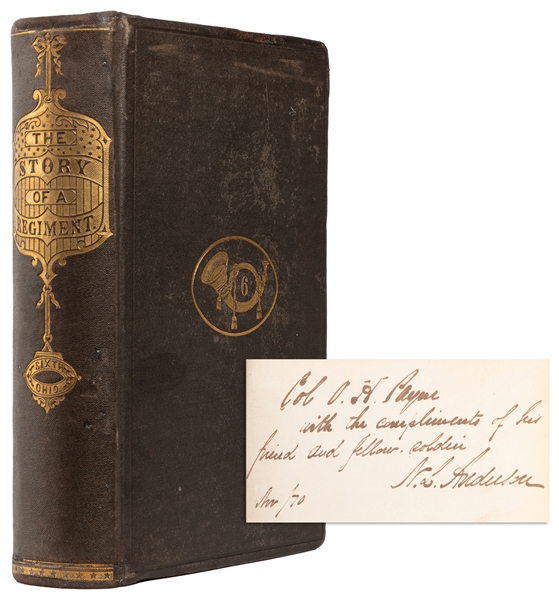 THE
STORY
OF A
REGIMENT.
SIXTH
OHIO.
6
Col O. H. Payne
with the compliments of his
friend and fellow-soldier
N. L. Anderson
Nov /70